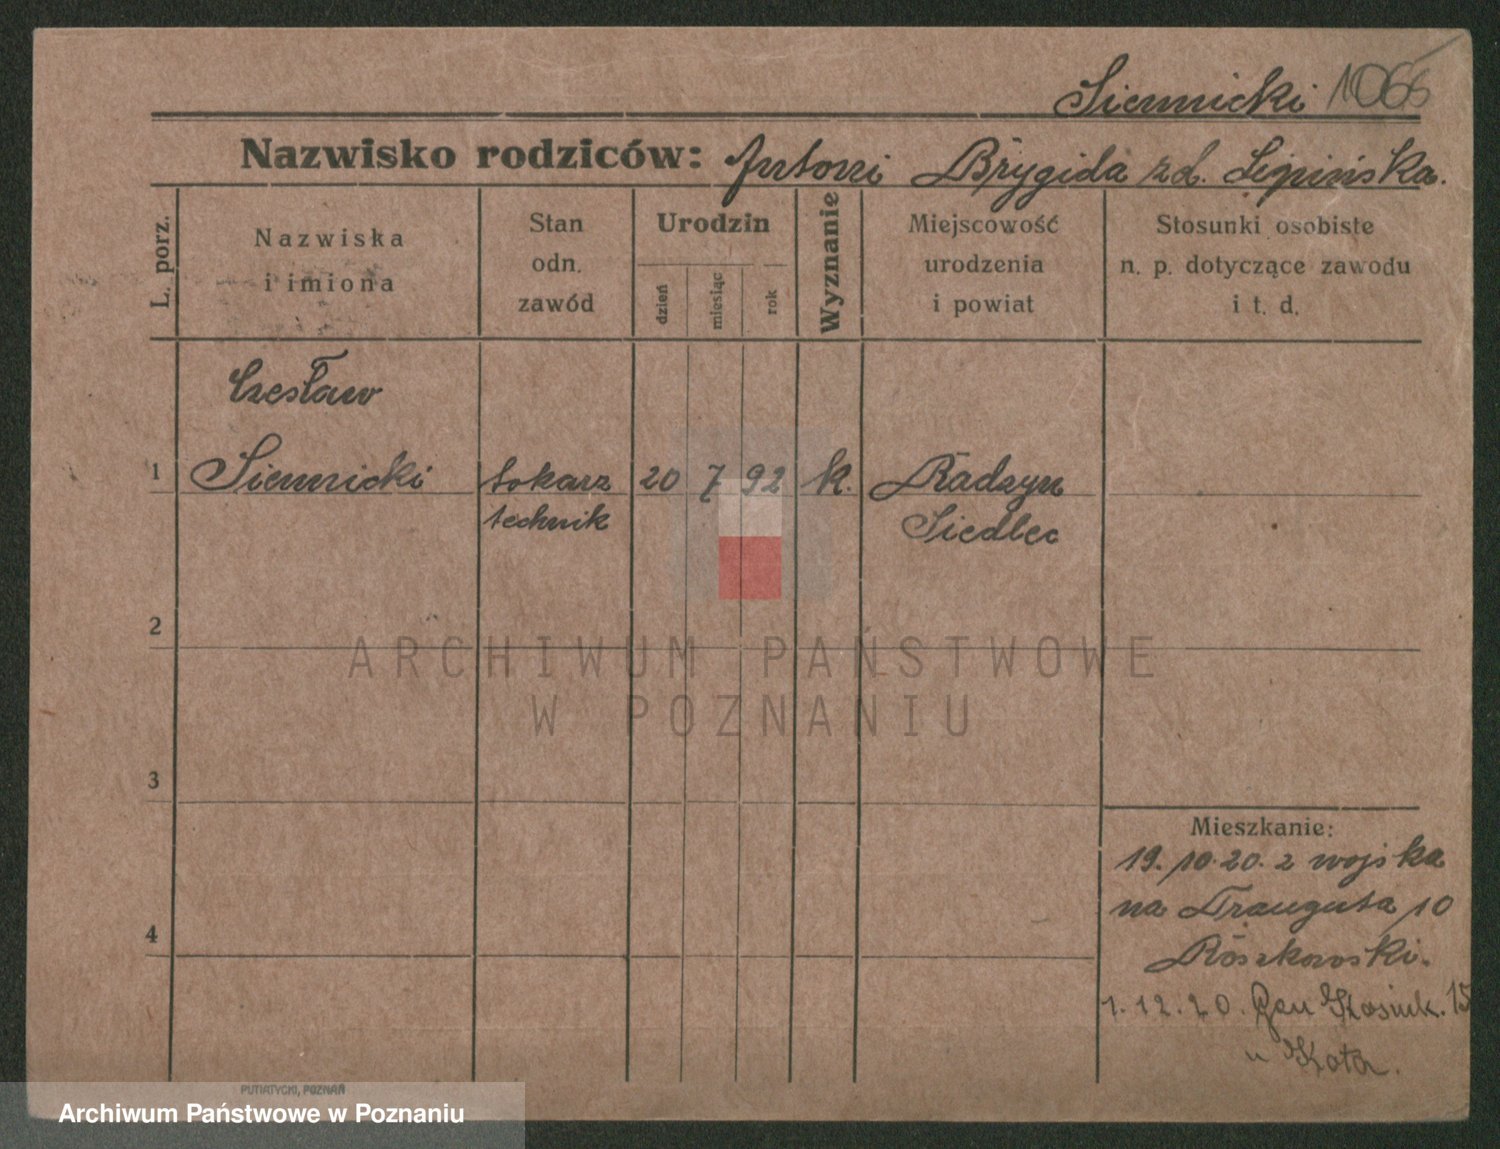 Siennicki 1066
Nazwisko rodziców: Antoni Brygida zd. Lipińska.
L. porz.
Nazwiska
i imiona
Stan
odn.
zawód
Urodzin
dzień
miesiąc
rok
Wyznanie
Miejscowość
urodzenia
i powiat
Stosunki osobiste
n. p. dotyczące zawodu
i t. d.
Czesław
1 Siennicki tokarz 20 7 92 k. Radzyn
technik Siedlec
2
ARCHIWUM PAŃSTWOWE
W POZNANIU
3
Mieszkanie:
19.10.20. z wojska
na Trauguta 10
4
Roszkowski.
1.12.20. 15
u Kota.
PUTIATYCKI, POZNAŃ
Archiwum Państwowe w Poznaniu